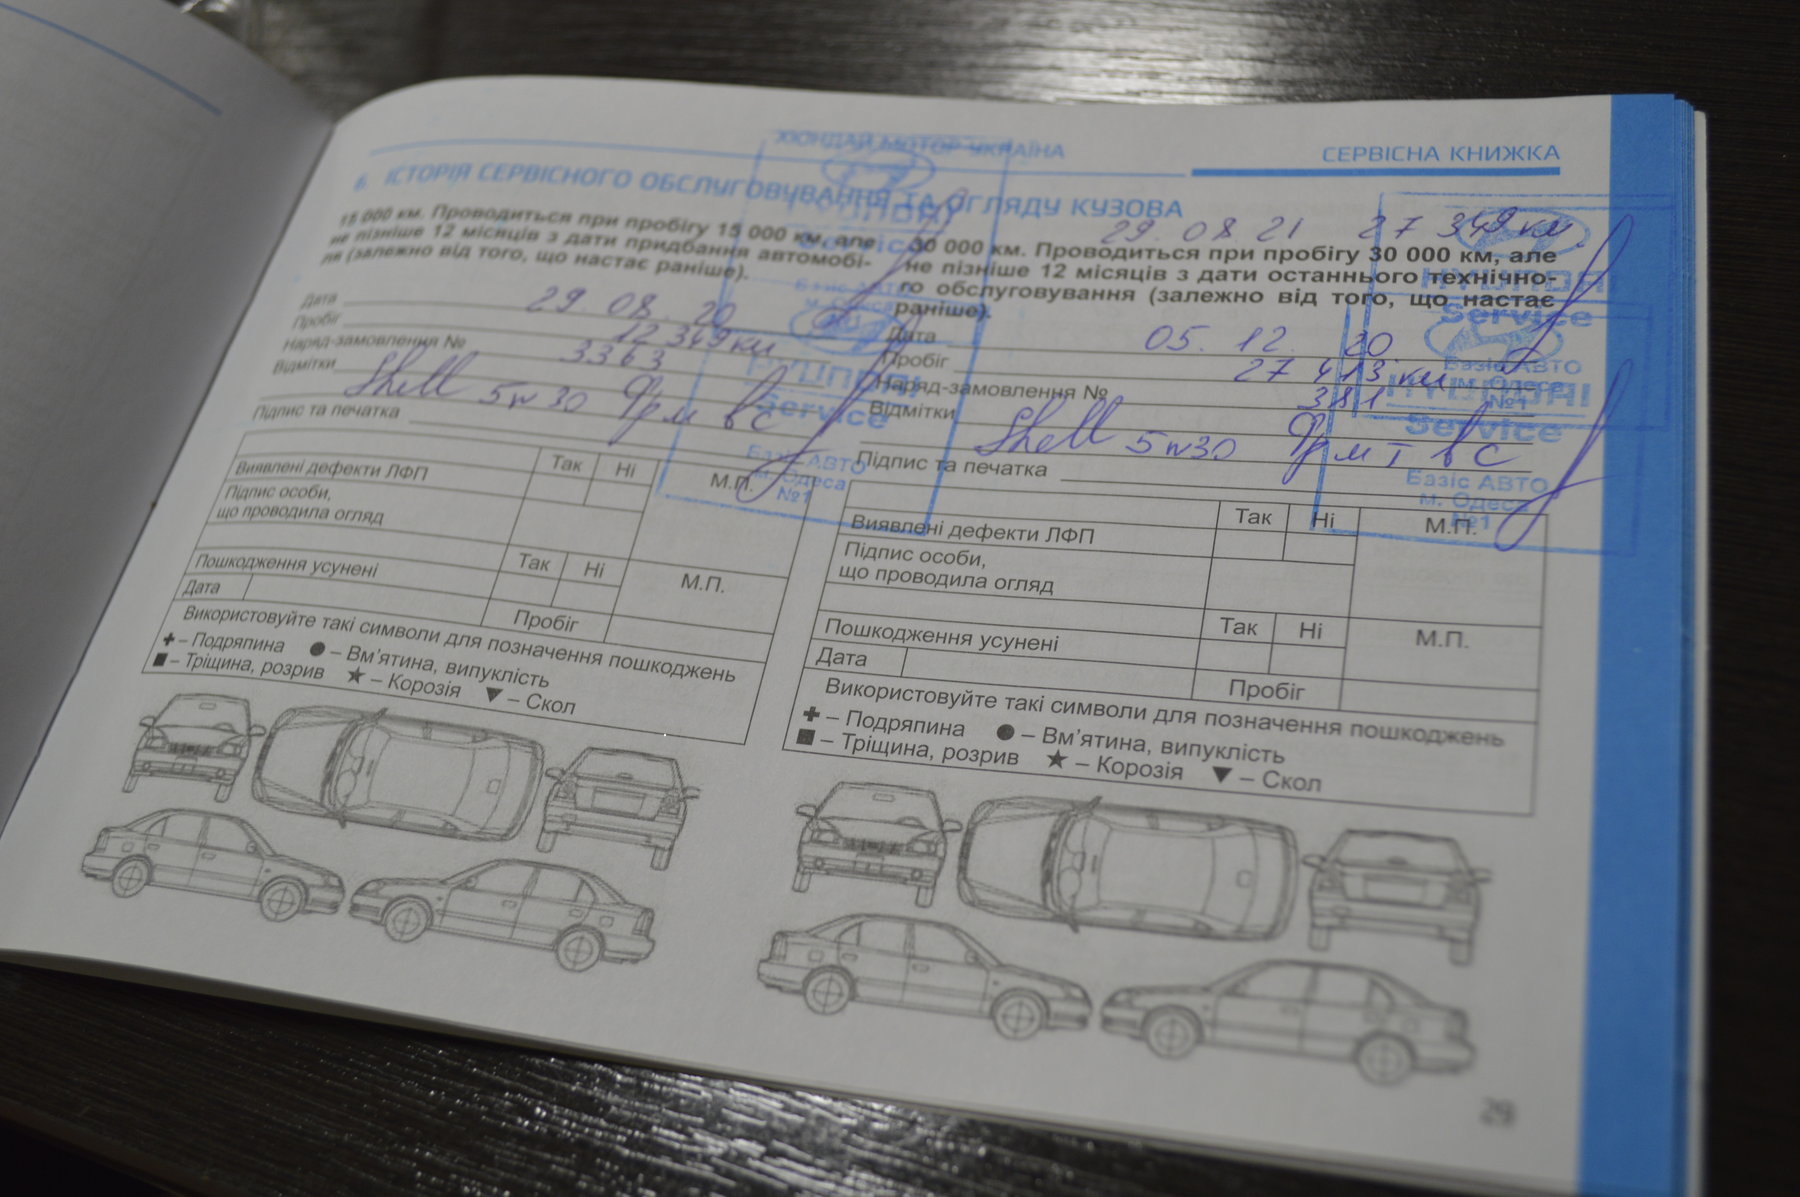 ХЮНДАЙ МОТОР УКРАЇНА
СЕРВІСНА КНИЖКА
6. ІСТОРІЯ СЕРВІСНОГО ОБСЛУГОВУВАННЯ ТА ОГЛЯДУ КУЗОВА
15 000 км. Проводиться при пробігу 15 000 км, але
не пізніше 12 місяців з дати придбання автомобі-
ля (залежно від того, що настає раніше).
Дата 29. 08. 20
Пробіг 12 349 км
Наряд-замовлення № 3363
Відмітки
Shell 5w30
Підпис та печатка
HYUNDAI
Service
Базіс АВТО
м. Одеса
№1
Виявлені дефекти ЛФП Так Ні М.П.
Підпис особи,
що проводила огляд
Пошкодження усунені Так Ні М.П.
Дата Пробіг
Використовуйте такі символи для позначення пошкоджень
– Подряпина – Вм'ятина, випуклість
– Тріщина, розрив – Корозія – Скол
29. 08. 21 27 349 км.
30 000 км. Проводиться при пробігу 30 000 км, але
не пізніше 12 місяців з дати останнього технічно-
го обслуговування (залежно від того, що настає
раніше).
Дата 05. 12. 20
Пробіг 27 413 км
Наряд-замовлення № 381
Відмітки
Shell 5w30
Підпис та печатка
HYUNDAI
Service
Базіс АВТО
м. Одеса
№1
HYUNDAI
Service
Базіс АВТО
м. Одеса
№1
Виявлені дефекти ЛФП Так Ні М.П.
Підпис особи,
що проводила огляд
Пошкодження усунені Так Ні М.П.
Дата Пробіг
Використовуйте такі символи для позначення пошкоджень
– Подряпина – Вм'ятина, випуклість
– Тріщина, розрив – Корозія – Скол
29